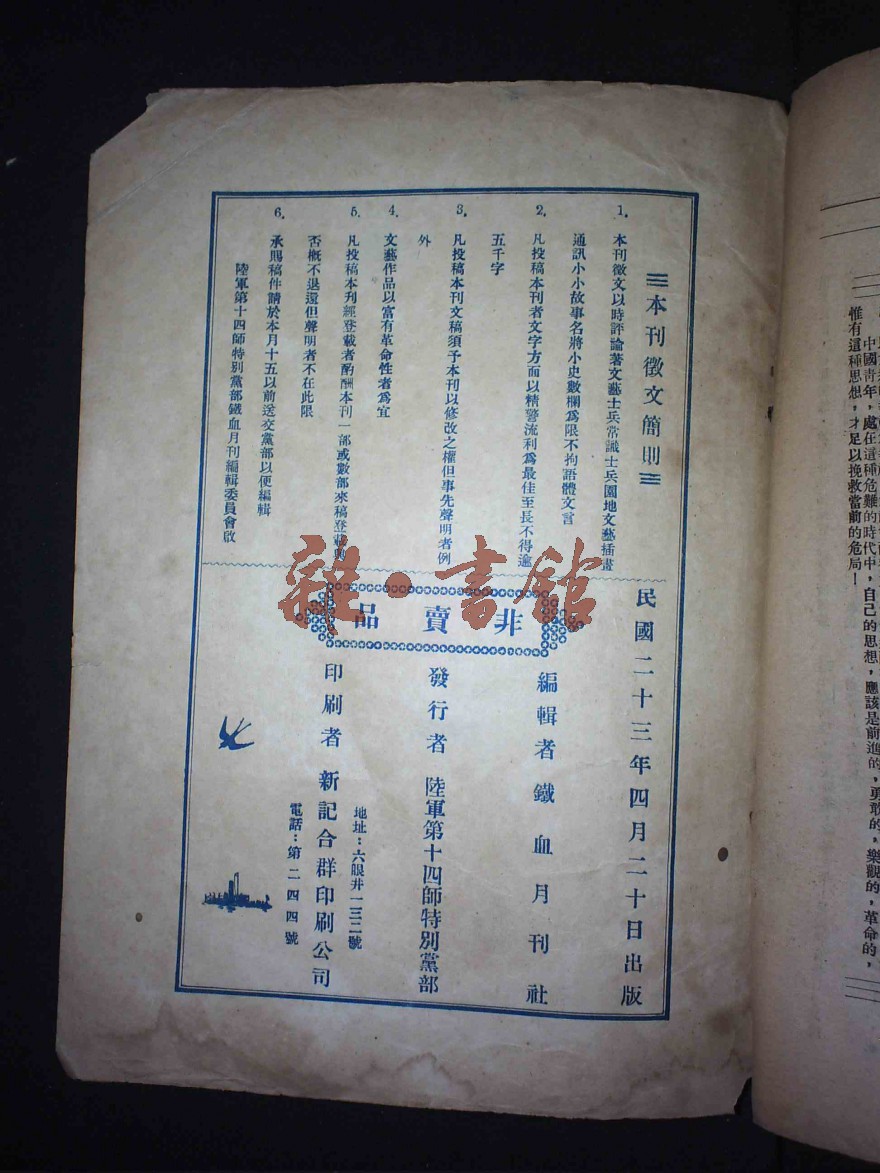 本刊徵文簡則
1. 本刊徵文以時評論著文藝士兵常識士兵園地文藝插畫
通訊小小故事名將小史數欄爲限不拘語體文言
2. 凡投稿本刊者文字方面以精警流利爲最佳至長不得逾
五千字
3. 凡投稿本刊文稿須予本刊以修改之權但事先聲明者例
外
4. 文藝作品以富有革命性者爲宜
5. 凡投稿本刋經登載者酌酬本刊一部或數部來稿登載與
否概不退還但聲明者不在此限
6. 承賜稿件請於本月十五以前送交黨部以便編輯
陸軍第十四師特別黨部鐵血月刊編輯委員會啟
民國二十三年四月二十日出版
非賣品
編輯者 鐵血月刊社
發行者 陸軍第十四師特別黨部
印刷者 新記合群印刷公司
地址：六眼井一三二號
電話：第二四四號
雜·書館
中國青年，處在這種危難的時代中，自己的思想，應該是前進的，勇敢的，樂觀的，革命的，
惟有這種思想，才足以挽救當前的危局！